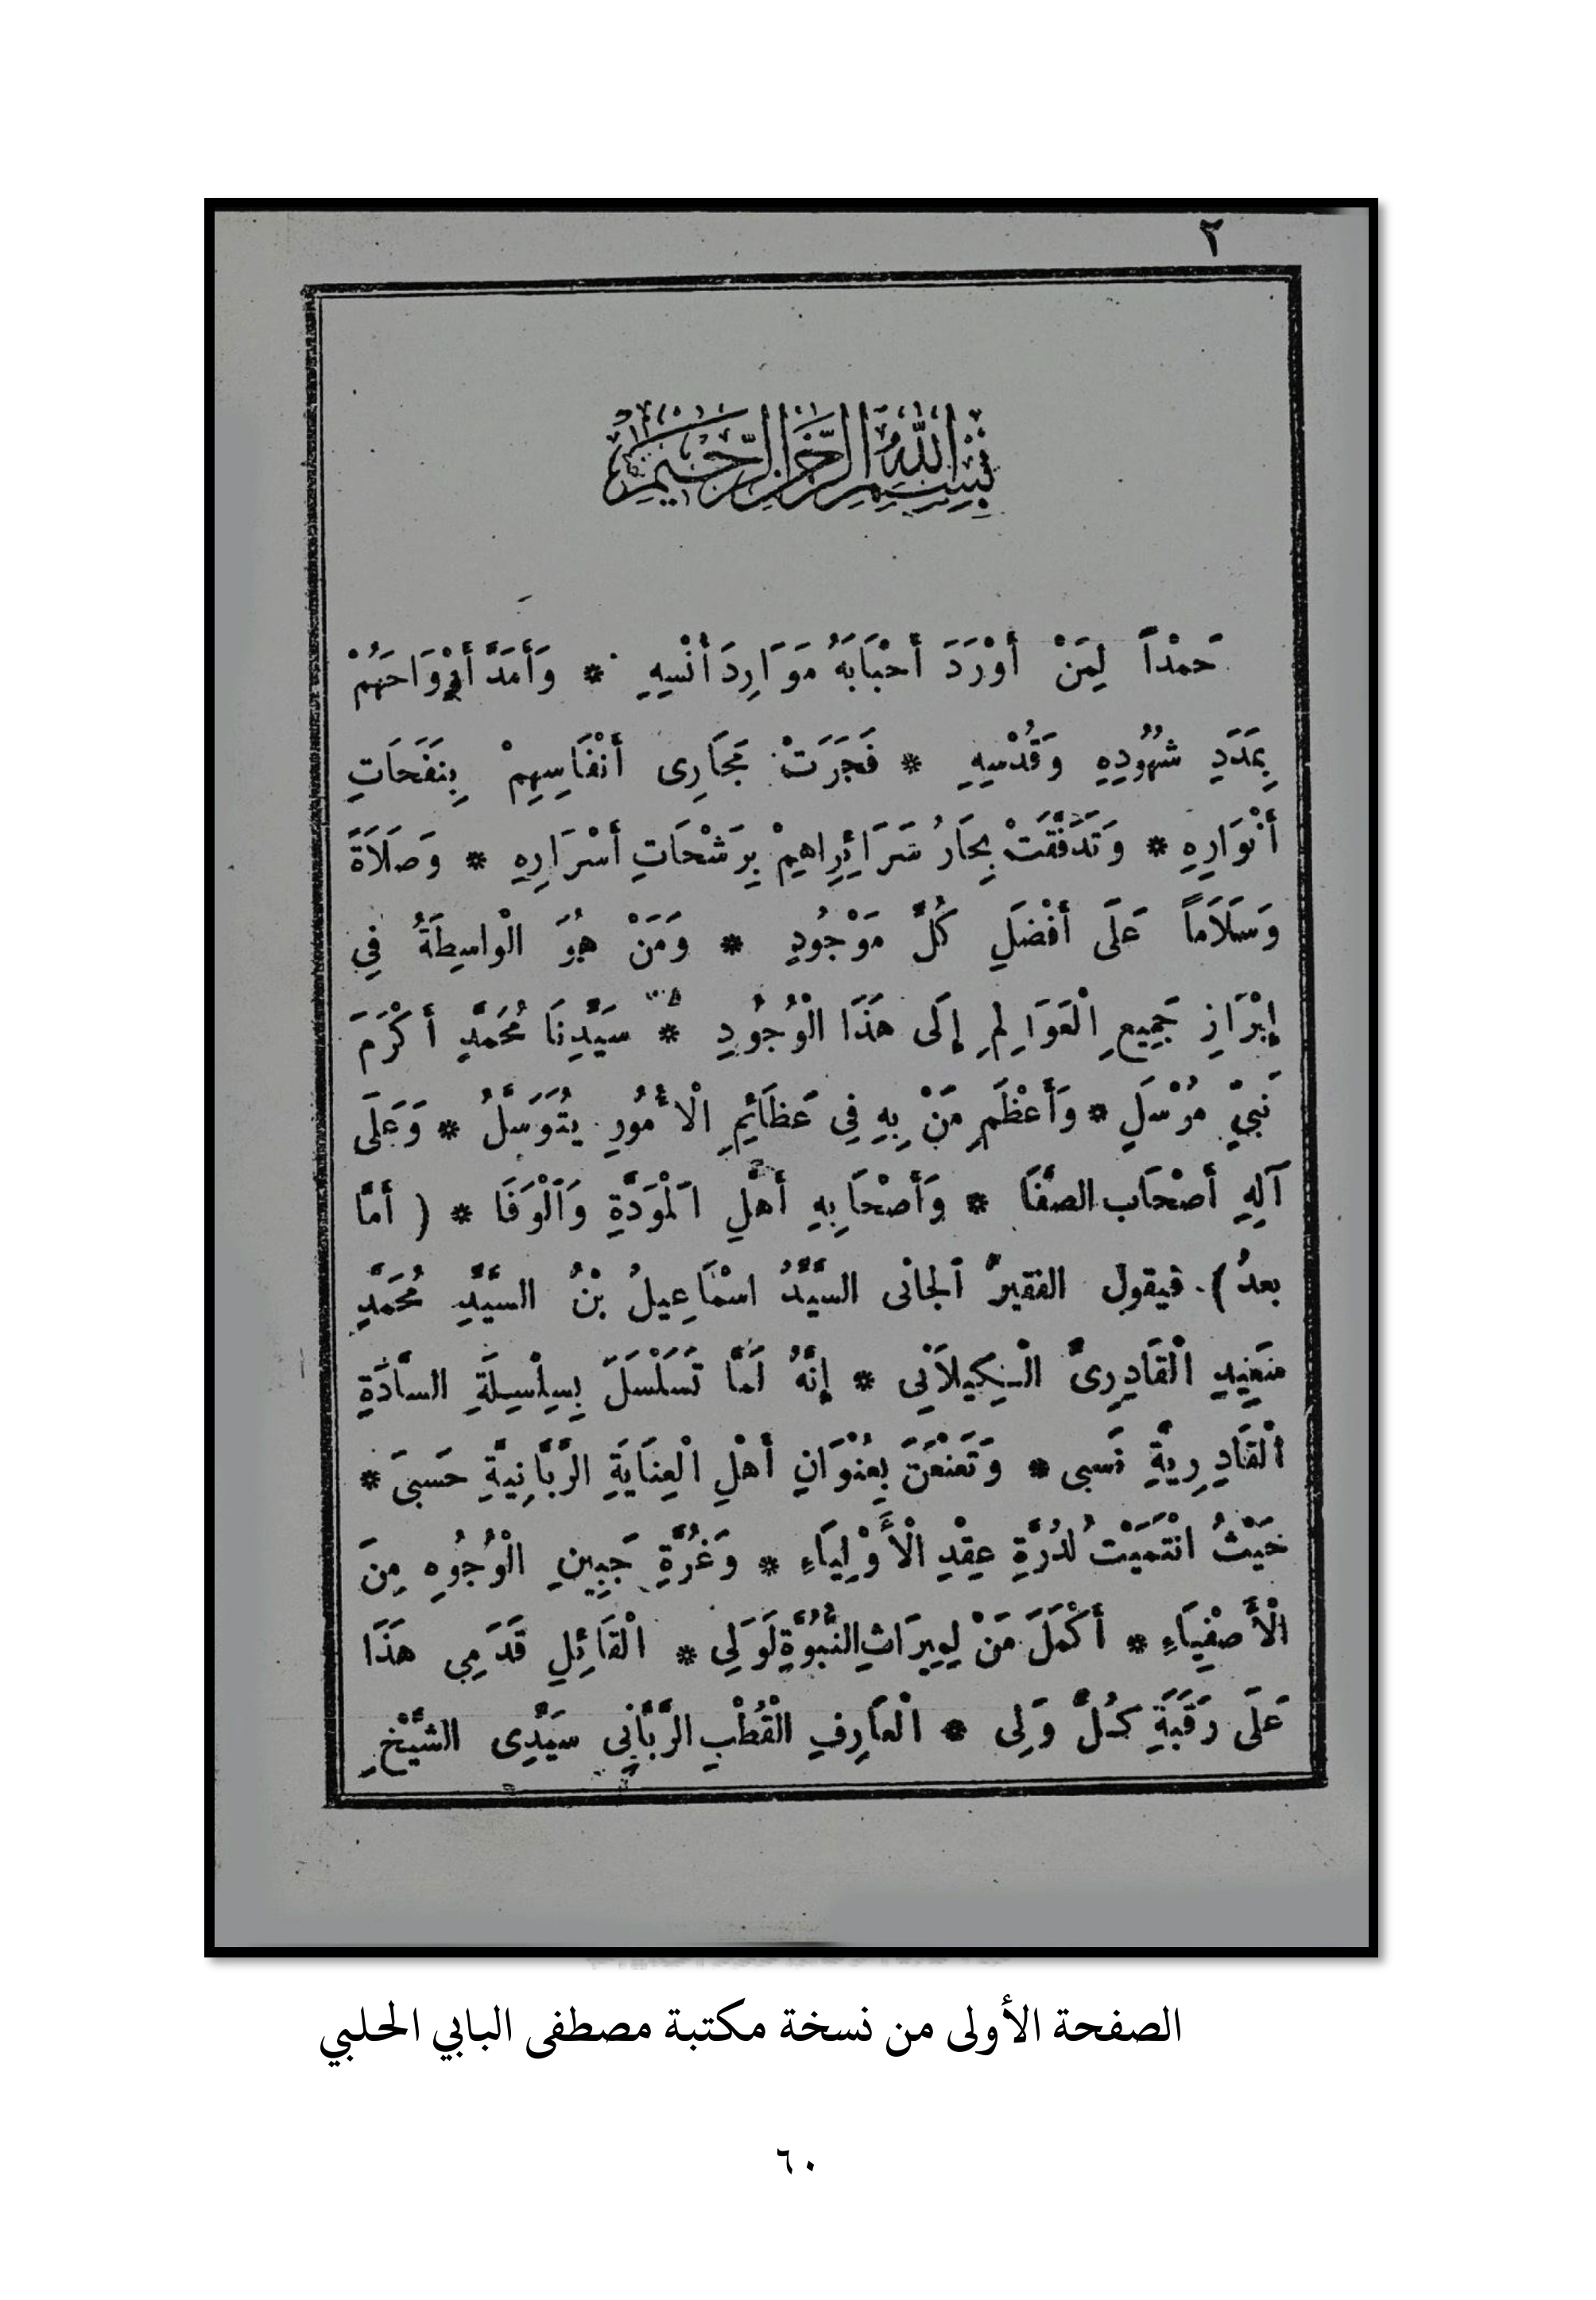 ٢
بِسْمِ اللّٰهِ الرَّحْمٰنِ الرَّحِيمِ
حَمْدًا لِمَنْ أَوْرَدَ أَحْبَابَهُ مَوَارِدَ أُنْسِهِ * وَأَمَدَّ أَرْوَاحَهُمْ
بِمَدَدِ شُهُودِهِ وَقُدْسِهِ * فَجَرَتْ مَجَارِى أَنْفَاسِهِمْ بِنَفَحَاتِ
أَنْوَارِهِ * وَتَدَفَّقَتْ بِحَارُ سَرَائِرِاهِمْ بِرَشْحَاتِ أَسْرَارِهِ * وَصَلَاةً
وَسَلَاماً عَلَى أَفْضَلِ كُلِّ مَوْجُودٍ * وَمَنْ هُوَ الْواسِطَةُ فِي
إِبْرَازِ جَمِيعِ الْعَوَالِمِ إِلَى هَذَا الْوُجُودِ * سَيِّدِنَا مُحَمَّدٍ أَكْرَمَ
نَبِيّ مُرْسَلٍ * وَأَعْظَمِ مَنْ بِهِ فِي عَظَائِمِ الْأُمُورِ يُتَوَسَّلُ * وَعَلَى
آلِهِ أَصْحَاب الصَّفَا * وَأَصْحَابِهِ أَهْلِ الْمَوَدَّةِ وَالْوَفَا * ( أَمَّا
بعدُ ). فيقول الفقيرُ الجانى السَّيِّدُ اسْمَاعِيلُ بْنُ السَّيِّدِ مُحَمَّدٍ
سَعِيدِ الْقَادِرِىِّ الْكِيلَانِى * إِنَّهُ لَمَّا تَسَلْسَلَ بِسِلْسِلَةِ السَّادَةِ
الْقَادِرِيَّةِ نَسبى * وَتَعَنْعَنَ بِعُنْوَانِ أَهْلِ الْعِنَايَةِ الرَّبَّانِيَّةِ حَسَبىَ *
حَيْثُ انْتَمَيْتُ لدُرَّةِ عِقْدِ الْأَوْلِيَاءِ * وَغُرَّةِ جَبِينِ الْوُجُوهِ مِنَ
الْأَصْفِيَاءِ * أَكْمَلَ مَنْ لِمِيرَاثِ النُّبُوَّةِ لَوَلِى * الْقَائِلِ قَدَمِى هَذَا
عَلَى رَقَبَةِ كُلِّ وَلِى * الْعَارِفِ الْقُطْبِ الرَّبَّانِى سَيِّدِى الشَّيْخِ
الصفحة الأولى من نسخة مكتبة مصطفى البابي الحلبي
٦٠